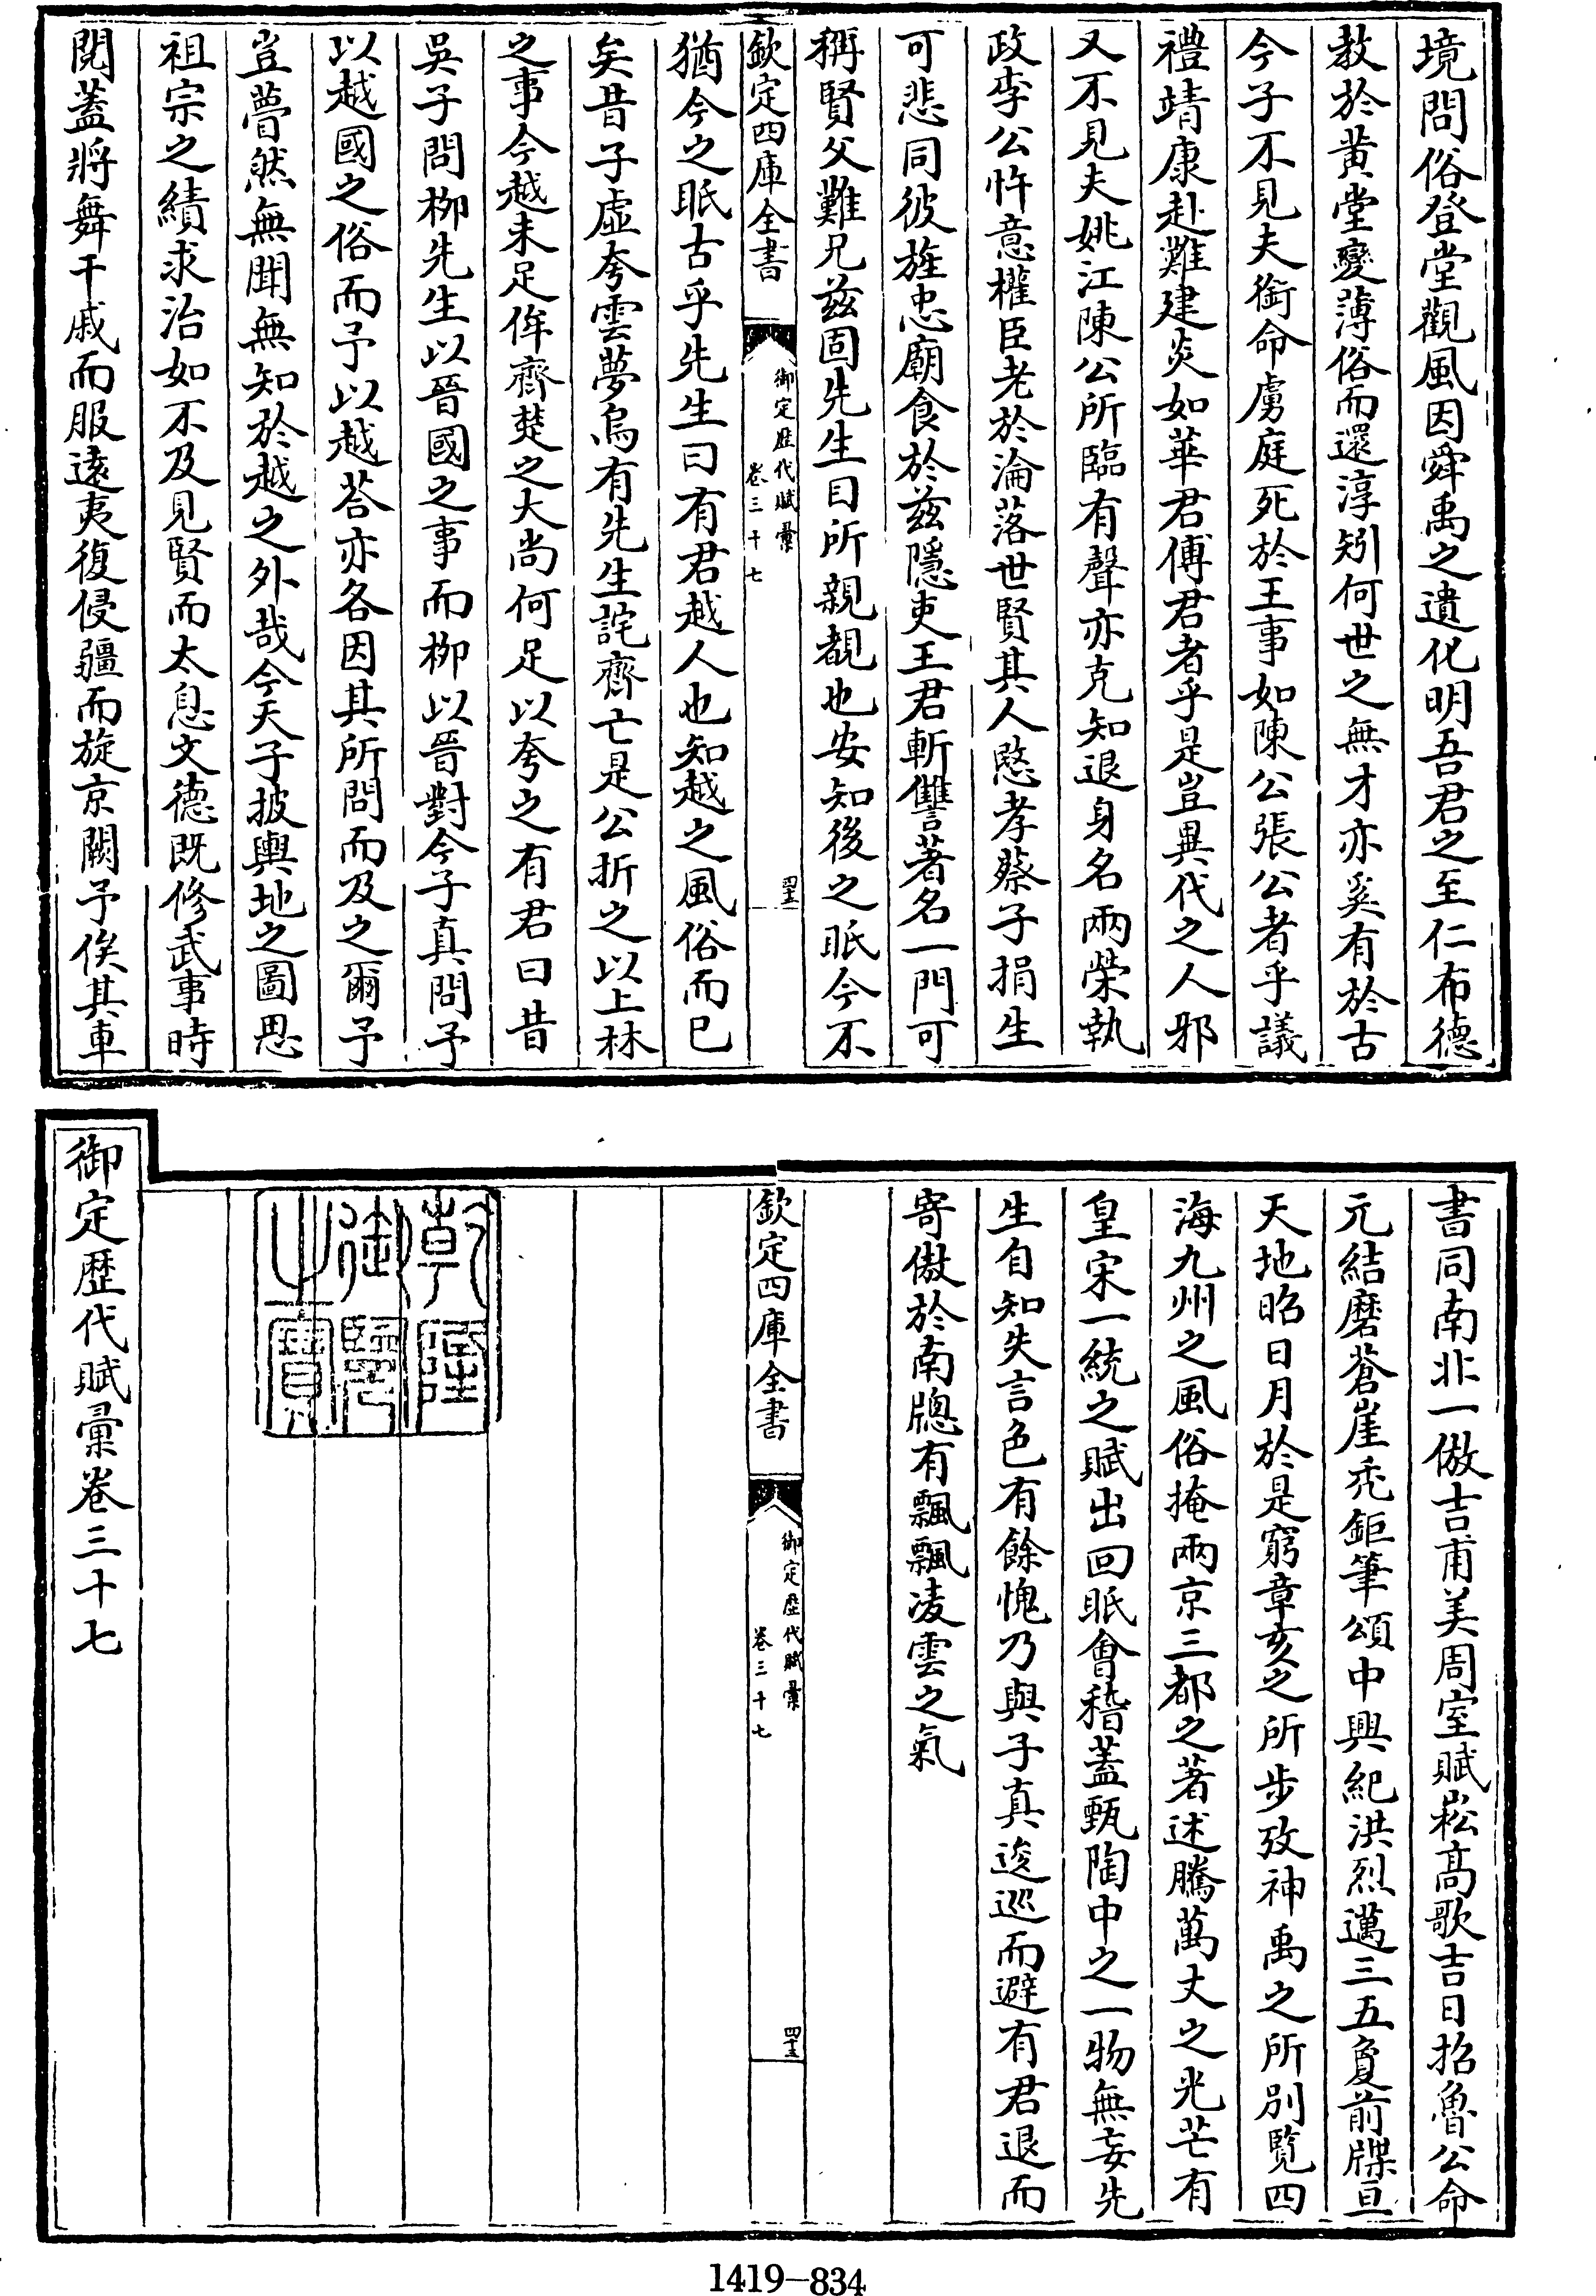 境問俗登堂觀風因舜禹之遺化明吾君之至仁布德
教於黃堂變薄俗而還淳矧何世之無才亦奚有於古
今子不見夫銜命虜庭死於王事如陳公張公者乎議
禮靖康赴難建炎如華君傅君者乎是豈異代之人邪
又不見夫姚江陳公所臨有聲亦克知退身名兩榮執
政李公忤意權臣老於淪落世賢其人愍孝蔡子捐生
可悲同彼旌忠廟食於兹隱吏王君斬讐著名一門可
稱賢父難兄兹固先生目所親覩也安知後之眂今不
欽定四庫全書
御定歷代賦彙
卷三十七
猶今之眂古乎先生曰有君越人也知越之風俗而已
矣昔子虛夸雲夢烏有先生詫齊亡是公折之以上林
之事今越未足侔齊楚之大尚何足以夸之有君曰昔
吳子問栁先生以晉國之事而栁以晉對今子真問予
以越國之俗而予以越荅亦各因其所問而及之爾予
豈瞢然無聞無知於越之外哉今天子披輿地之圖思
祖宗之績求治如不及見賢而太息文德既修武事時
閱蓋將舞干戚而服遠夷復侵疆而旋京闕予俟其車
書同南北一倣吉甫美周室賦崧高歌吉日招魯公命
元結磨蒼崖禿鉅筆頌中興紀洪烈邁三五夐前牒亘
天地昭日月於是窮章亥之所步攷神禹之所別覽四
海九州之風俗掩兩京三都之著述騰萬丈之光芒有
皇宋一統之賦出回眂會稽蓋甄陶中之一物無妄先
生自知失言色有餘愧乃與子真逡巡而避有君退而
寄傲於南牕有飄飄凌雲之氣
欽定四庫全書
御定歷代賦彙
卷三十七
乾隆
御覽
之寶
御定歷代賦彙卷三十七
1419-834